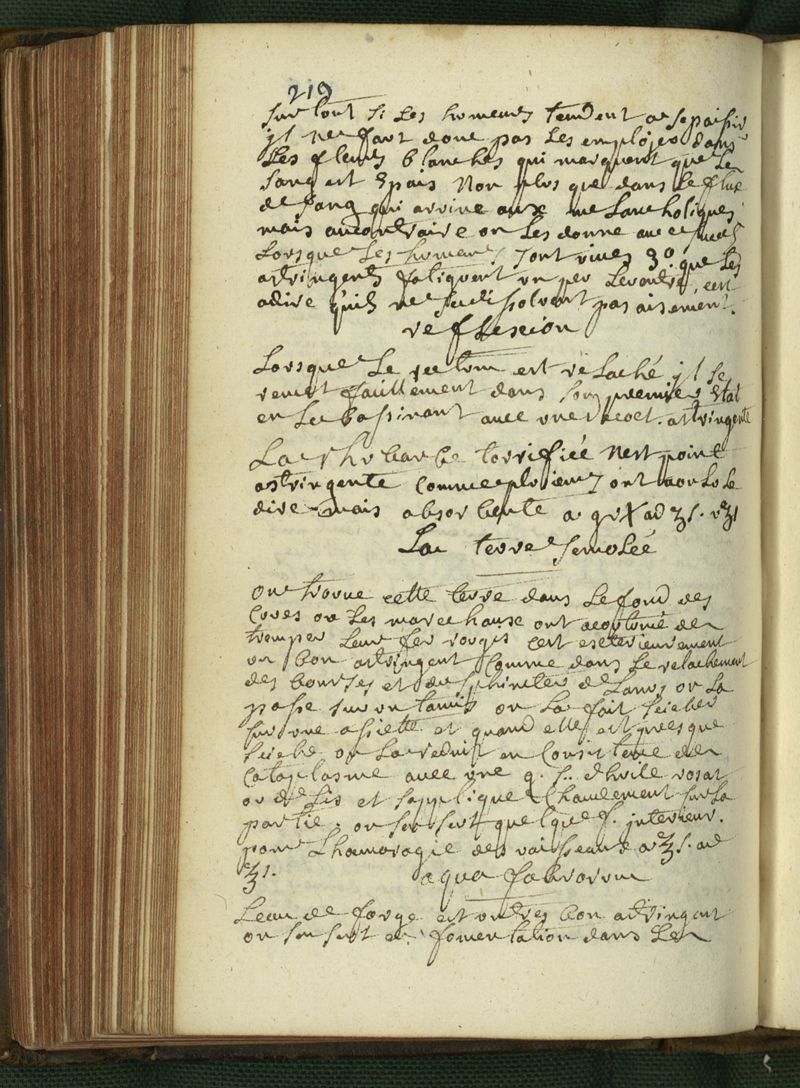 219
sur tout si les humeurs tendent a sepaissir
jl ne faut donc pas les employer dans
les fleurs blanches qui marquent que le
sang est Epais Non plus que dans le flux
de sang qui arrive aux melancholiques
mais aucontraire on les donne avec succes
Lorsque les humeurs sont vives 3º. que les
astringents fatiguent un peu le ventre, cest
adire quils ne se dissolvent pas aisement.
reflexion
Lorsque Le rectum est relaché jl se
remet facillement dans son premier Etat
en le bassinant avec une decoct. astringente
La rhubarbe torrifiée Nest point
astringente comme plusieurs ont voulu le
dire mais absorbente a gr X ad ʒ s. ʒ1
La terre semolée
On trouve cette terre dans le fond des
Cuves ou les marechaux ont acoutumé de
tremper leur fer rouges cest exterieurement
un bon astringent comme dans le relachement
des bourses et du sphincter de Lanus on La
passe sur un tamis on La fait seicher
sur une assiette et quand elle est presque
seiche on La reduit en Consistence de
Cataplasme avec une q. s. dhuile rosat
ou de Lis et sapplique chaudement sur La
partie. on sen sert quelque f. interieur.
pour Lhemoragie des vaisseaux a ʒ s. ad
ʒ 1.
aqua fabrorum
Leau de forge est un tres bon astringent
on sen sert en fomentation dans Le